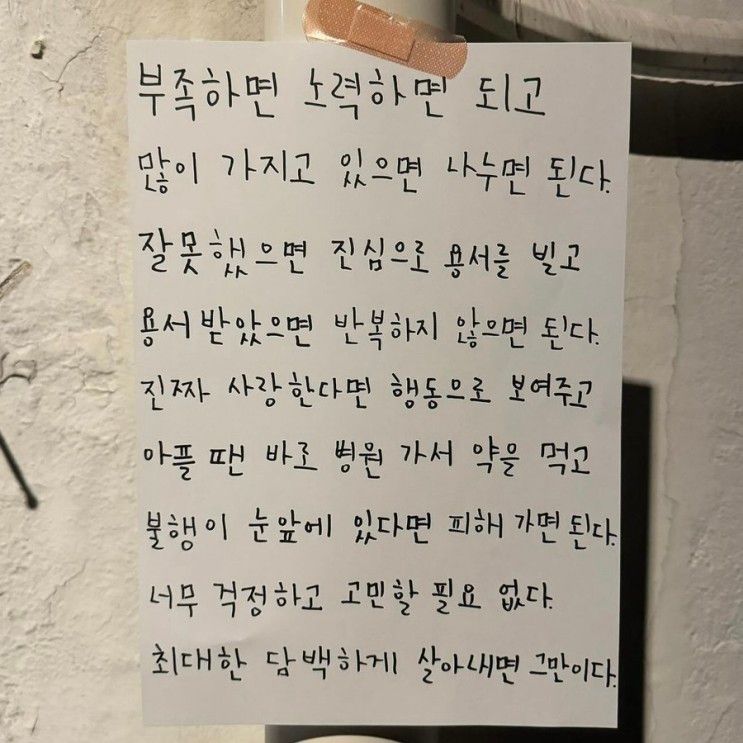 부족하면 노력하면 되고
많이 가지고 있으면 나누면 된다.
잘못했으면 진심으로 용서를 빌고
용서받았으면 반복하지 않으면 된다.
진짜 사랑한다면 행동으로 보여주고
아플 땐 바로 병원 가서 약을 먹고
불행이 눈앞에 있다면 피해 가면 된다.
너무 걱정하고 고민할 필요 없다.
최대한 담백하게 살아내면 그만이다.